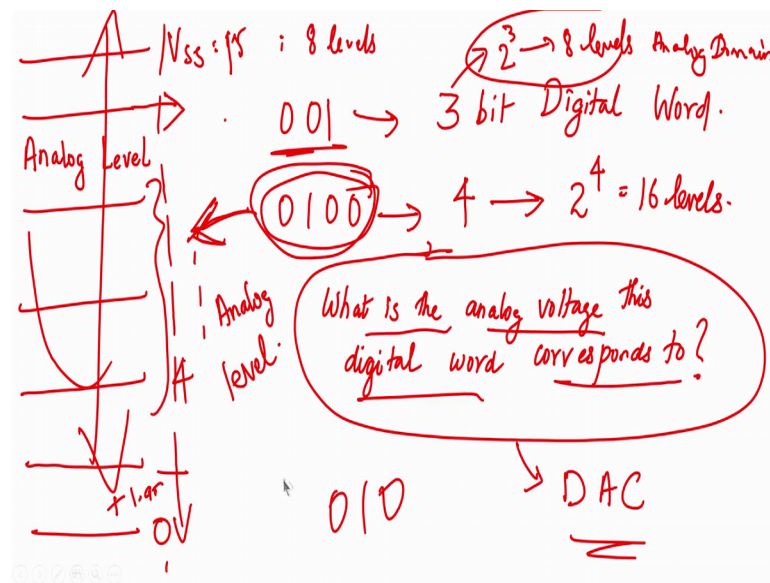 : 8 levels
2³ → 8 levels Analog Domain
001 → 3 bit Digital Word.
Analog Level
0100 → 4 → 2⁴ = 16 levels.
Analog
level.
What is the analog voltage this
digital word corresponds to?
DAC
010
0V